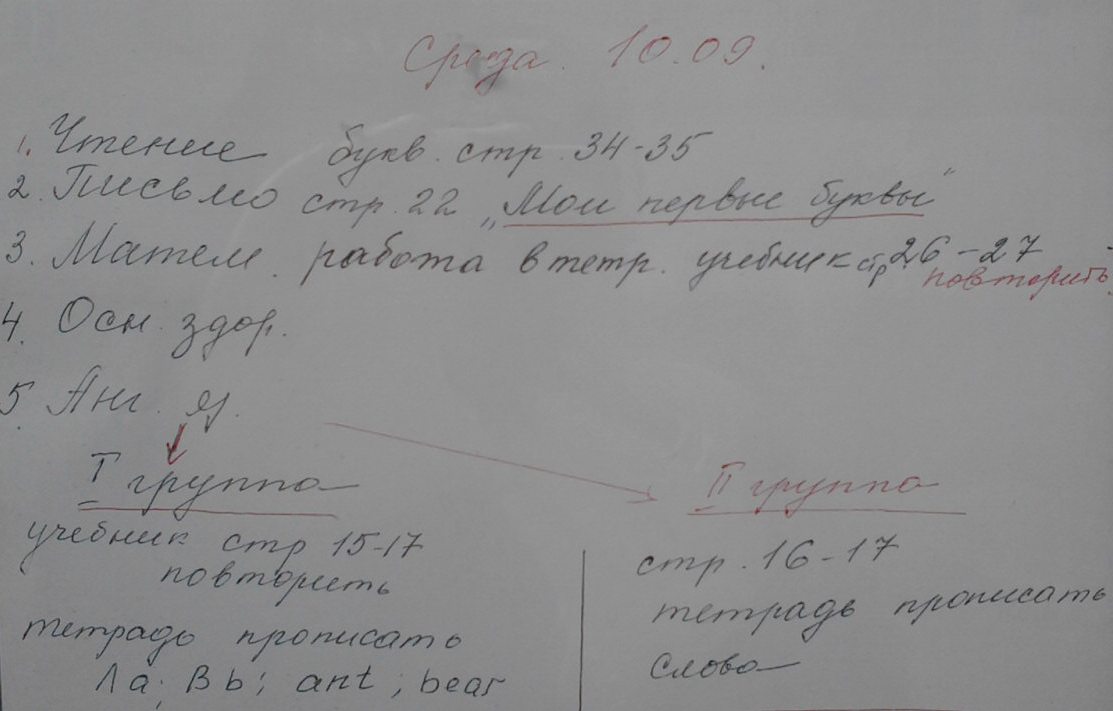 Среда. 10.09.
1. Чтение букв. стр. 34-35
2. Письмо стр. 22 „Мои первые буквы"
3. Матем. работа в тетр. учебник стр 26-27
повторить
4. Осн. здор.
5 Анг. яз.
I группа
учебник стр 15-17
повторить
тетрадь прописать
Aa; Bb; ant; bear
II группа
стр. 16-17
тетрадь прописать
слова